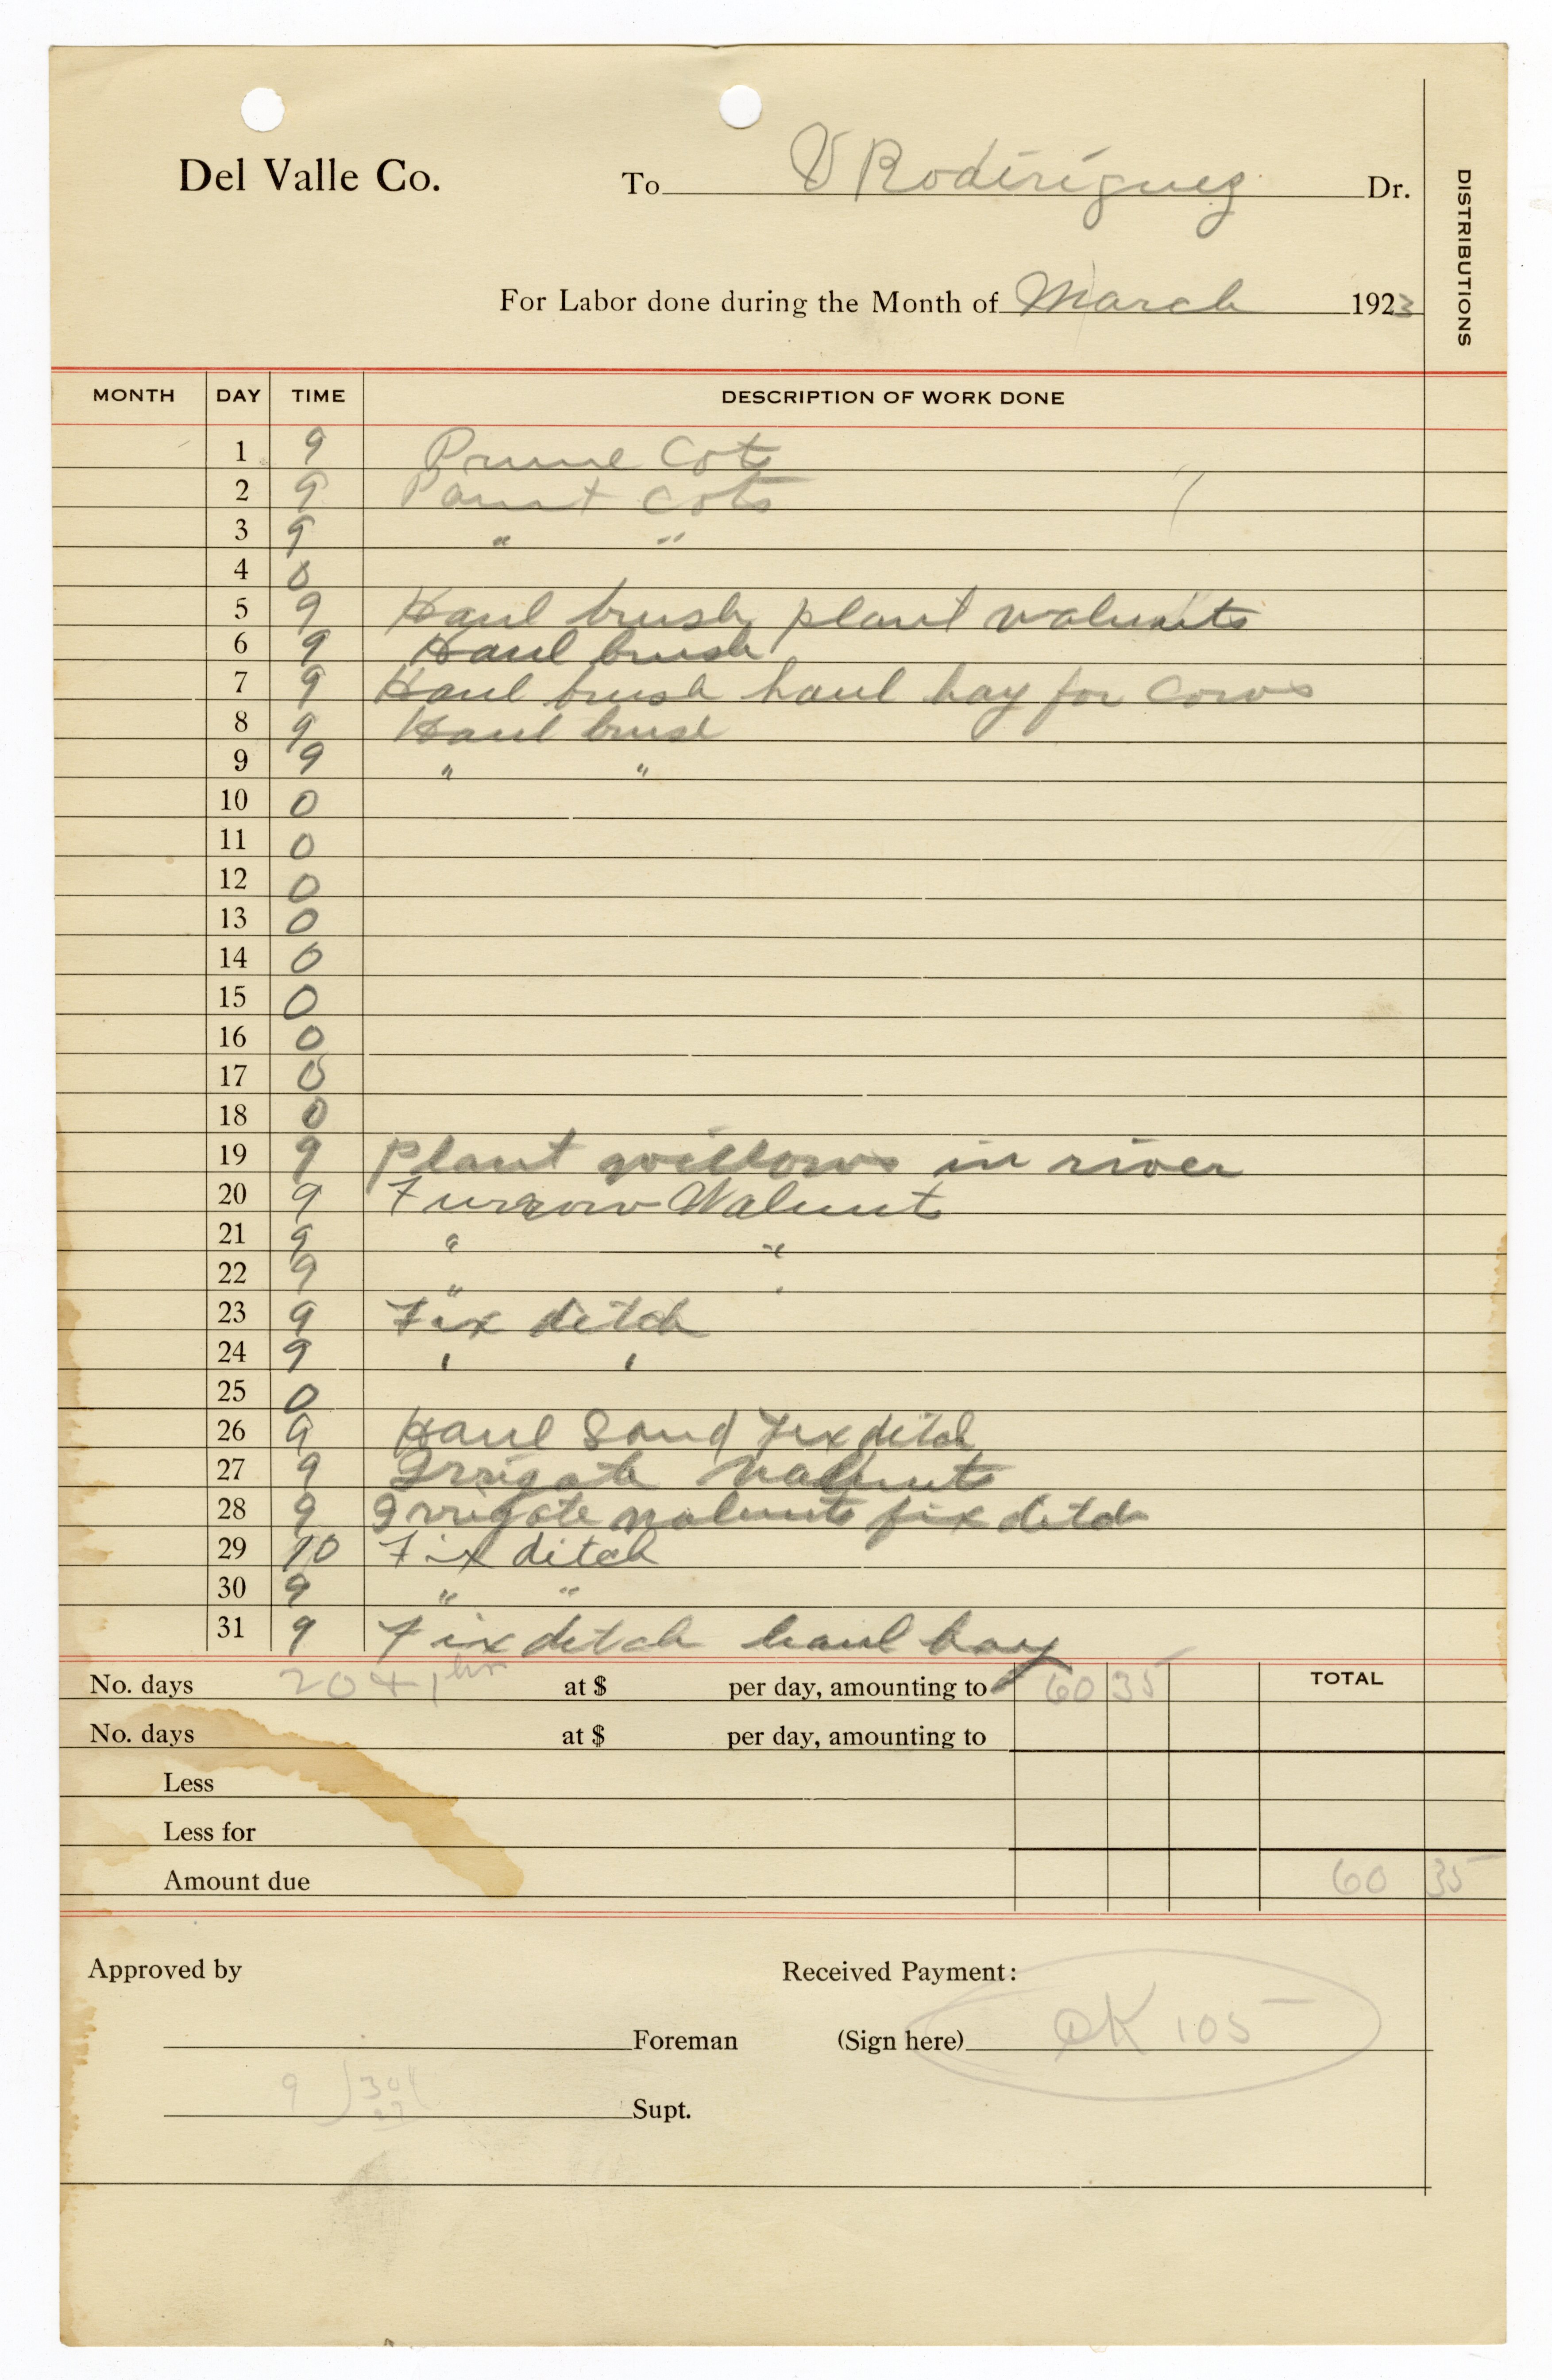 Del Valle Co. To V Rodiriguez Dr.
DISTRIBUTIONS
For Labor done during the Month of March 1923
MONTH DAY TIME DESCRIPTION OF WORK DONE
1 9 Prune Cots
2 9 Paint Cots
3 9 " "
4 0
5 9 Haul brush plant walnuts
6 9 Haul brush
7 9 Haul brush haul hay for Cows
8 9 Haul brush
9 9 " "
10 0
11 0
12 0
13 0
14 0
15 0
16 0
17 0
18 0
19 9 Plant willows in river
20 9 Furrow Walnuts
21 9 " "
22 9 " "
23 9 Fix ditch
24 9 " "
25 0
26 9 Haul Sand Fix ditch
27 9 Irrigate Walnuts
28 9 Irrigate walnuts fix ditch
29 10 Fix ditch
30 9 " "
31 9 Fix ditch haul hay
No. days 20 + 1 hr at $ per day, amounting to 60 35 TOTAL
No. days at $ per day, amounting to
Less
Less for
Amount due 60 35
Approved by Received Payment:
Foreman (Sign here) OK 105
9 )301
27
Supt.